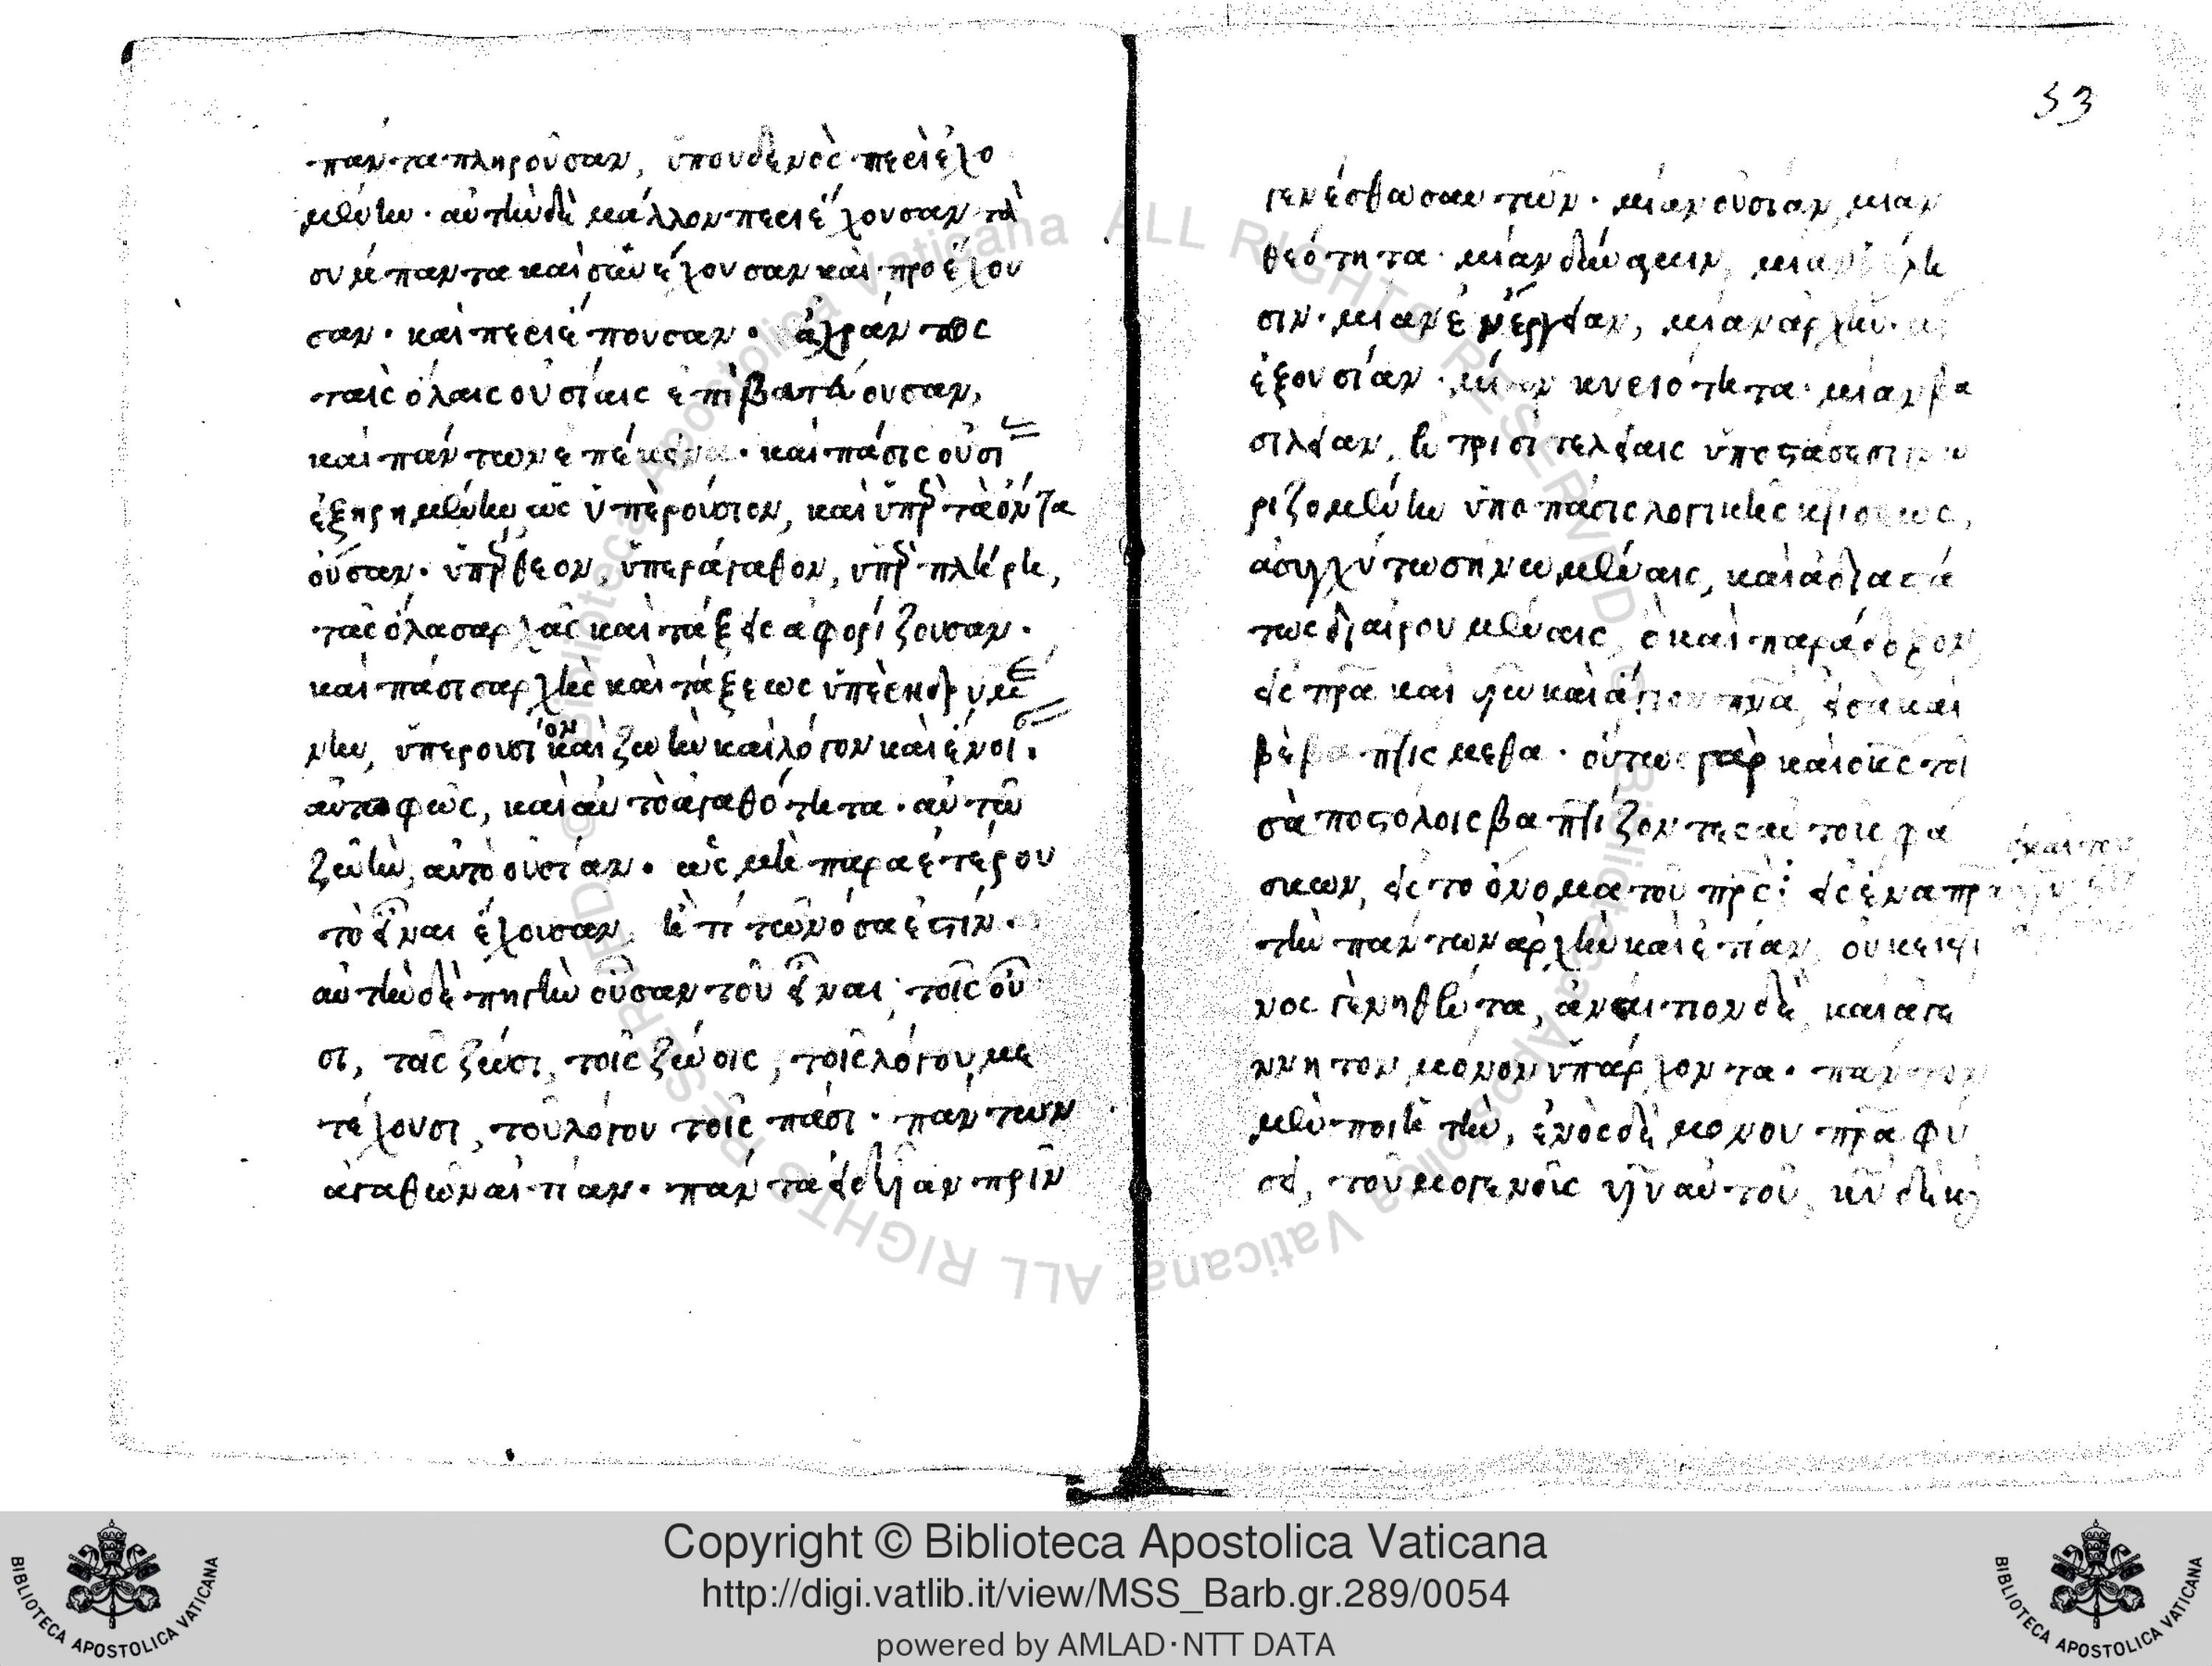 πάντα πληροῦσαν, ὑπουδενὸς περιεχο
μένην · αὐτὴν δὲ μάλλον περιέχουσαν τὰ
σύμπαντα καὶ συνέχουσαν καὶ προέχου
σαν · καὶ περιέπουσαν · ἀχράντως
ταῖς ὅλαις οὐσίαις ἐπιβατεύουσαν,
καὶ πάντων ἐπέκεινα · καὶ πάσης οὐσί
ἐξηρημένην ὡς ὑπερούσιον, καὶ ὑπὲρ τὰ ὄντα
οὖσαν · ὑπέρθεον, ὑπεράγαθον, ὑπερπλήρη,
τὰς ὅλας ἀρχὰς καὶ τάξεις ἀφορίζουσαν ·
καὶ πάσης ἀρχῆς καὶ τάξεως ὑπεριδρυμέ
νην, ὑπερούσιον καὶ ζωὴν καὶ λόγον καὶ ἔννοι.
αὐτοφῶς, καὶ αὐτοαγαθότητα · αὐτο
ζωὴν, αὐτοουσίαν · ὡς μὴ παρα ἑτέρου
τὸ εἶναι ἔχουσαν, ἤ τι τῶν ὅσα ἐστίν ·
αὐτὴν δὲ πηγὴν οὖσαν τοῦ εἶναι τοῖς οὖ
σι, τοῖς ζῶσι, τοῖς ζώοις, τοῖς λόγου με
τέχουσι, τοῦ λόγου τοῖς πᾶσι · πάντων
ἀγαθῶν αἰτίαν · πάντα εἰδυῖαν πρὶν
53
γενέσεως αὐτῶν · μίαν οὐσίαν, μίαν
θεότητα · μίαν δύναμιν, μίαν θέλη
σιν · μίαν ἐνέργειαν, μίαν ἀρχὴν ·
ἐξουσίαν · μίαν κυριότητα · μίαν βα
σιλείαν, ἐν τρισὶ τελείαις ὑποστάσεσι γνω
ριζομένην ὑπο πάσης λογικῆς κτίσεως,
ἀσυγχύτως ἡνωμέναις, καὶ ἀδιαστά
τως διαιρουμέναις, ὃ καὶ παράδοξον
εἰς πρα καὶ υν καὶ ἅγιον πνα, εἰς ἃ καὶ
βεβαπτίσμεθα · οὕτως γὰρ καὶ ὁ κς τοῖ
ς ἀποστόλοις βαπτίζοντες αὐτοὺς φά
σκων, εἰς το ὄνομα τοῦ πρς · εἰς ἕνα πρα
τὴν πάντων ἀρχὴν καὶ αἰτίαν, οὐκ ἔκ τι
νος γεννηθέντα, ἀναίτιον δὲ καὶ ἀγέ
ννητον μόνον ὑπάρχοντα · πάντων
μὲν ποιητὴν, ἑνὸς δὲ μόνου πρα φύ
σει, τοῦ μονογενοῦς υἱοῦ αὐτοῦ, κυ δὲ κ
Copyright © Biblioteca Apostolica Vaticana
http://digi.vatlib.it/view/MSS_Barb.gr.289/0054
powered by AMLAD·NTT DATA
BIBLIOTECA APOSTOLICA VATICANA
BIBLIOTECA APOSTOLICA VATICANA
© Biblioteca Apostolica Vaticana ALL RIGHTS RESERVED